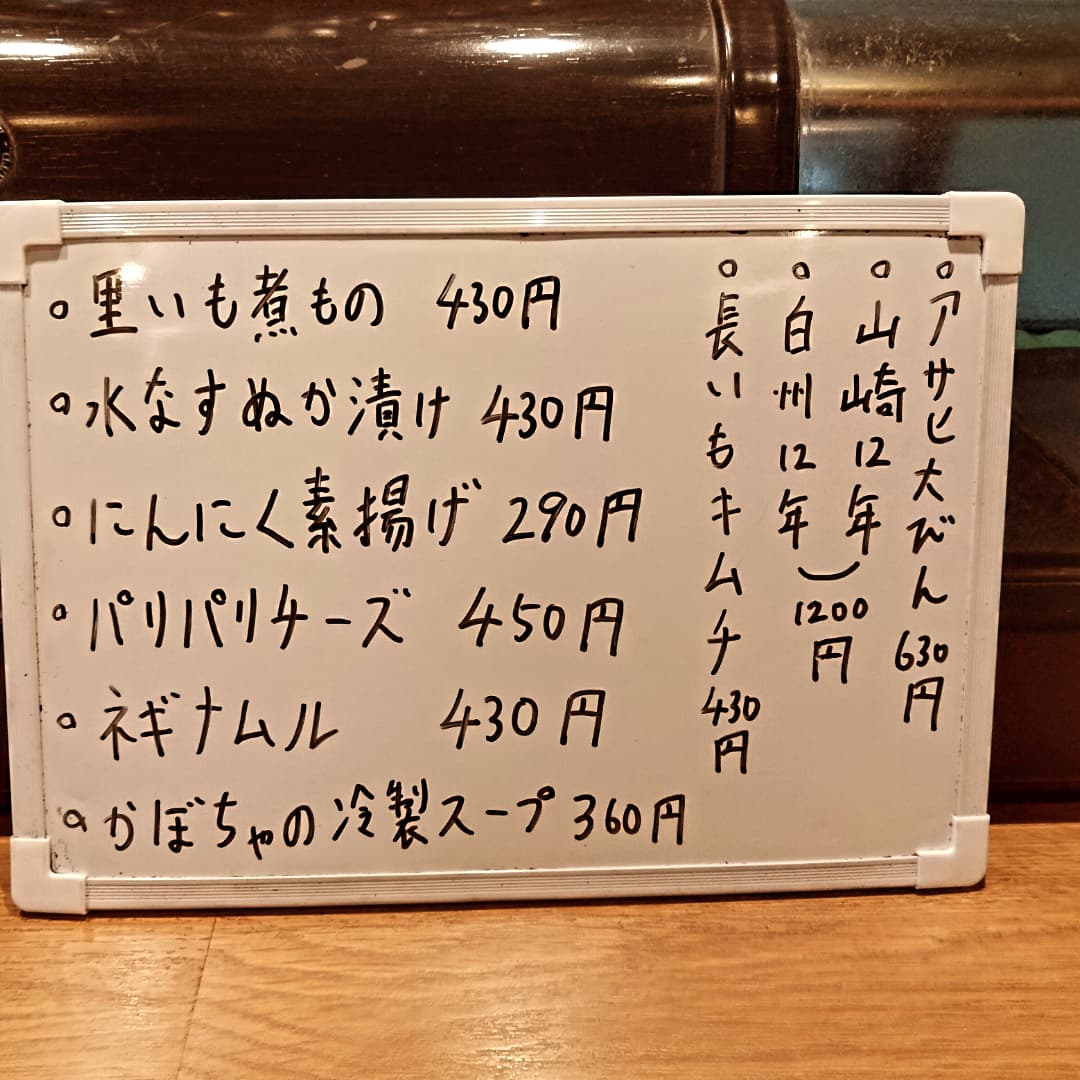 ○里いも煮もの 430円
○水なすぬか漬け 430円
○にんにく素揚げ 290円
○パリパリチーズ 450円
○ネギナムル 430円
○かぼちゃの冷製スープ 360円
○アサヒ大びん 630円
○山崎12年
○白州12年
) 1200円
○長いもキムチ 430円